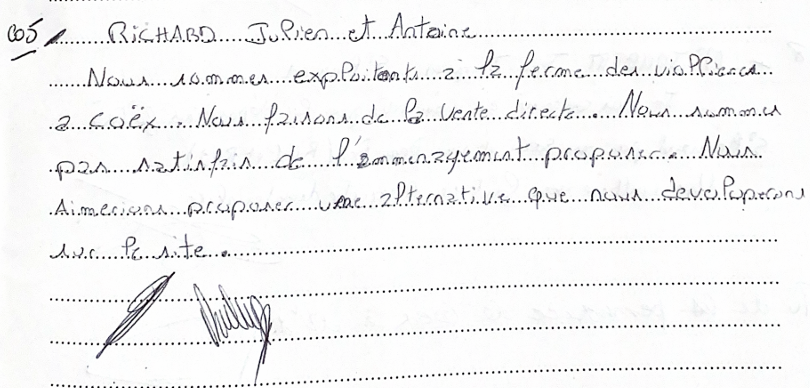 C05 RICHARD Julien et Antoine
Nous sommes exploitants à la ferme des viollieres
a coëx. Nous faisons de la vente directe. Nous sommes
pas satisfais de l'ammenagement proposer. Nous
Aimerions proposer une alternative que nous develloperons
sur le site.